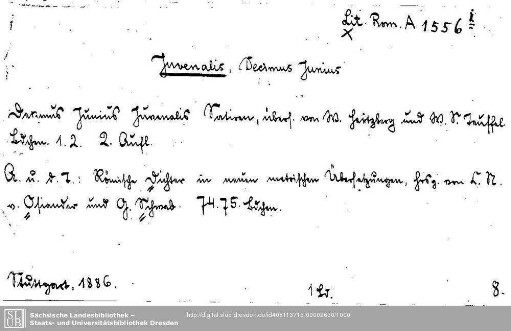 Lit. Rom. A 1556 i
Juvenalis, Decimus Junius
Decimus Junius Juvenalis Satiren, übers. von W. Hertzberg und W. S. Teuffel
Bdchen. 1. 2. 2. Aufl.
A. u. d. T.: Römische Dichter in neuen metrischen Übersetzungen, hrsg. von C. N.
v. Osiander und G. Schwab. 74. 75. Bdchen.
Stuttgart, 1886.
1 Bd. 8.
Sächsische Landesbibliothek –
Staats- und Universitätsbibliothek Dresden